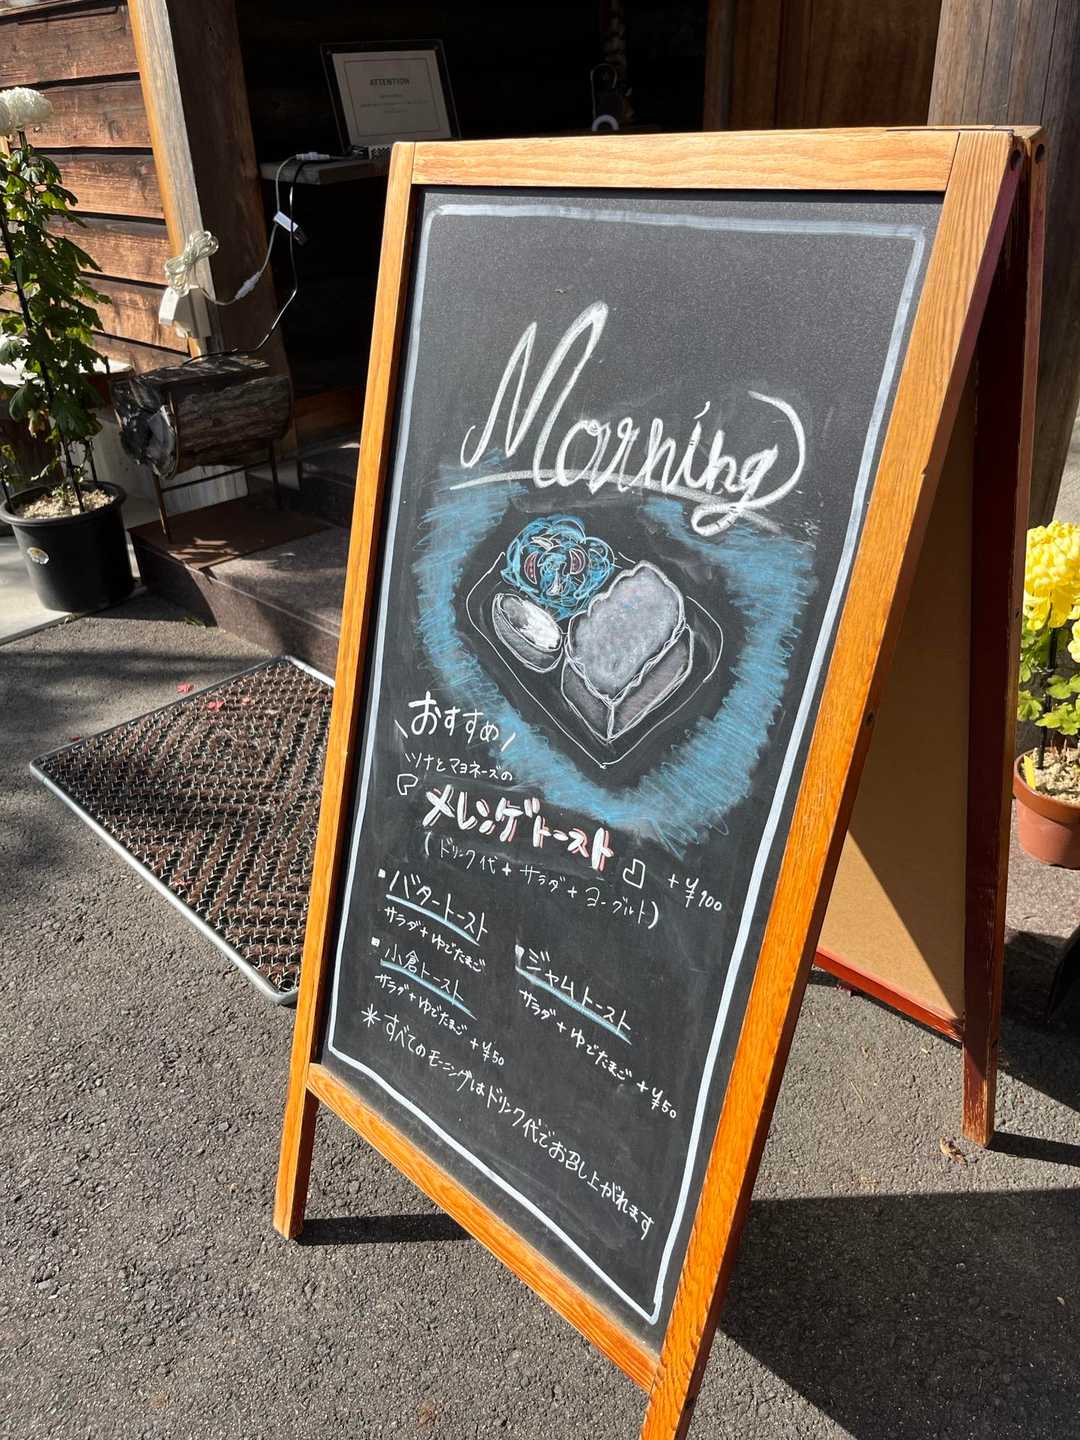 ATTENTION
Morning
\おすすめ/
ツナとマヨネーズの
「メレンゲトースト」 +¥100
(ドリンク代+サラダ+ヨーグルト)
▪バタートースト
サラダ+ゆでたまご
▪小倉トースト
サラダ+ゆでたまご +¥50
▪ジャムトースト
サラダ+ゆでたまご +¥50
＊すべてのモーニングはドリンク代でお召し上がれます